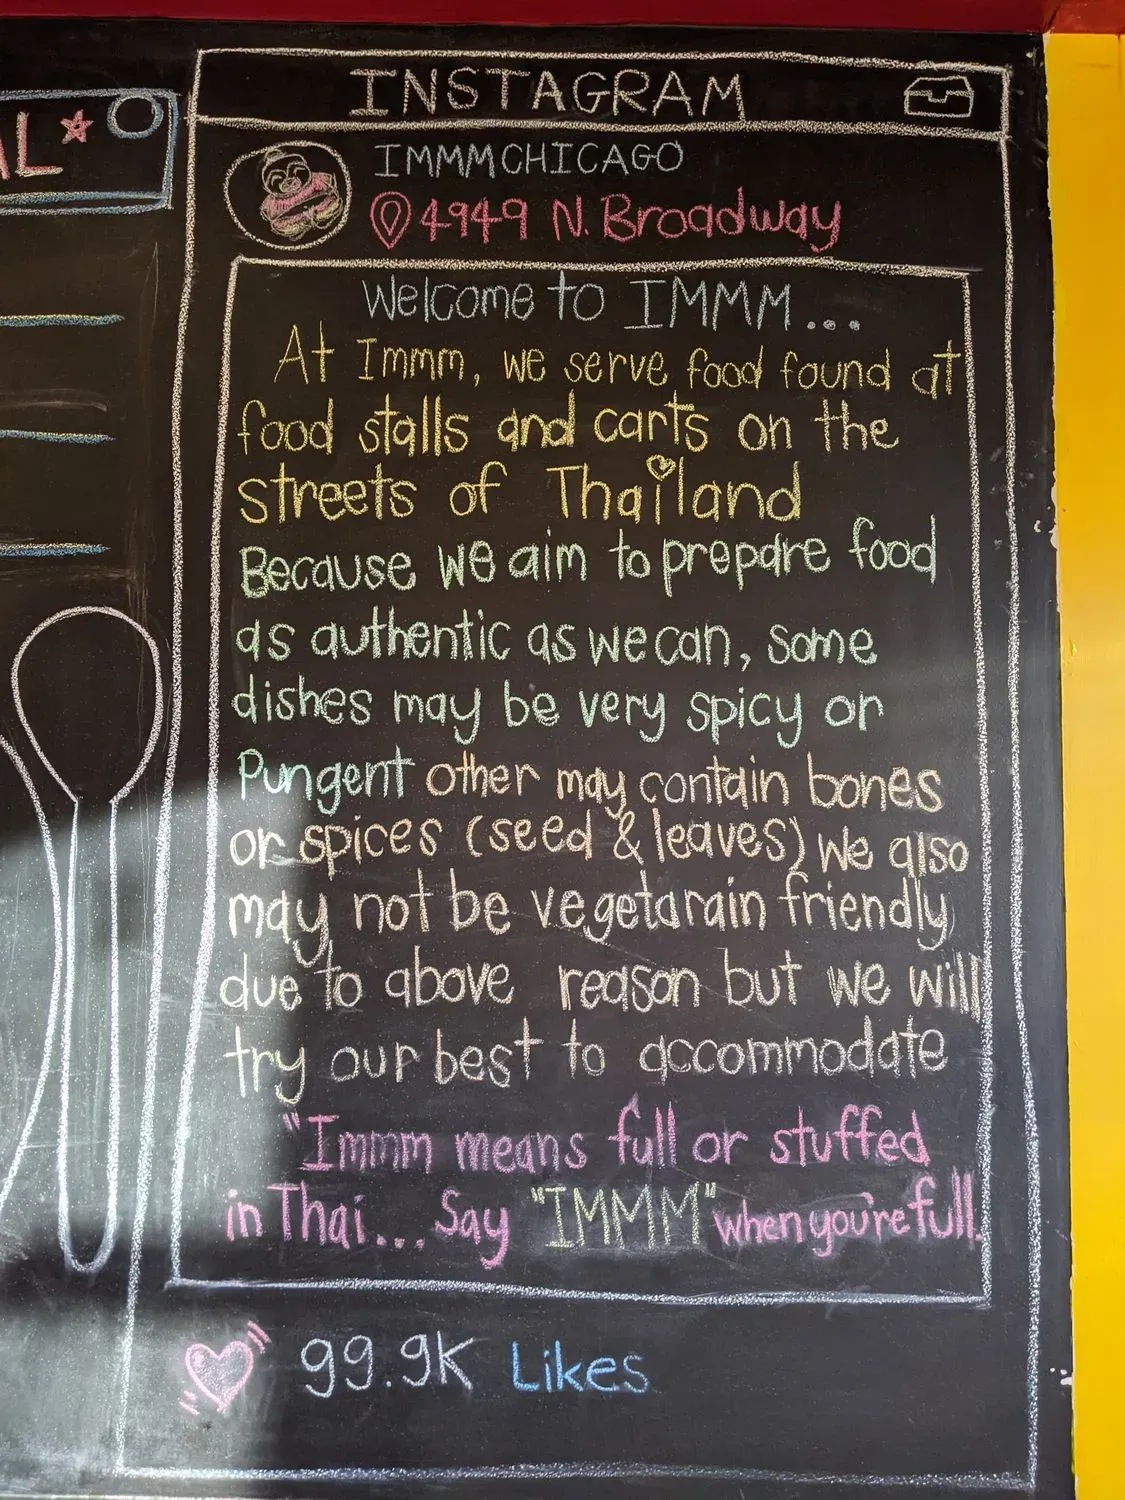 AL*
INSTAGRAM
IMMMCHICAGO
4949 N. Broadway
Welcome to IMMM...
At Immm, we serve food found at
food stalls and carts on the
streets of Thailand
Because we aim to prepare food
as authentic as we can, some
dishes may be very spicy or
Pungent other may contain bones
or spices (seed & leaves) we also
may not be vegetarain friendly
due to above reason but we will
try our best to accommodate
"Immm means full or stuffed
in Thai... Say "IMMM" when you're full.
99.9K Likes